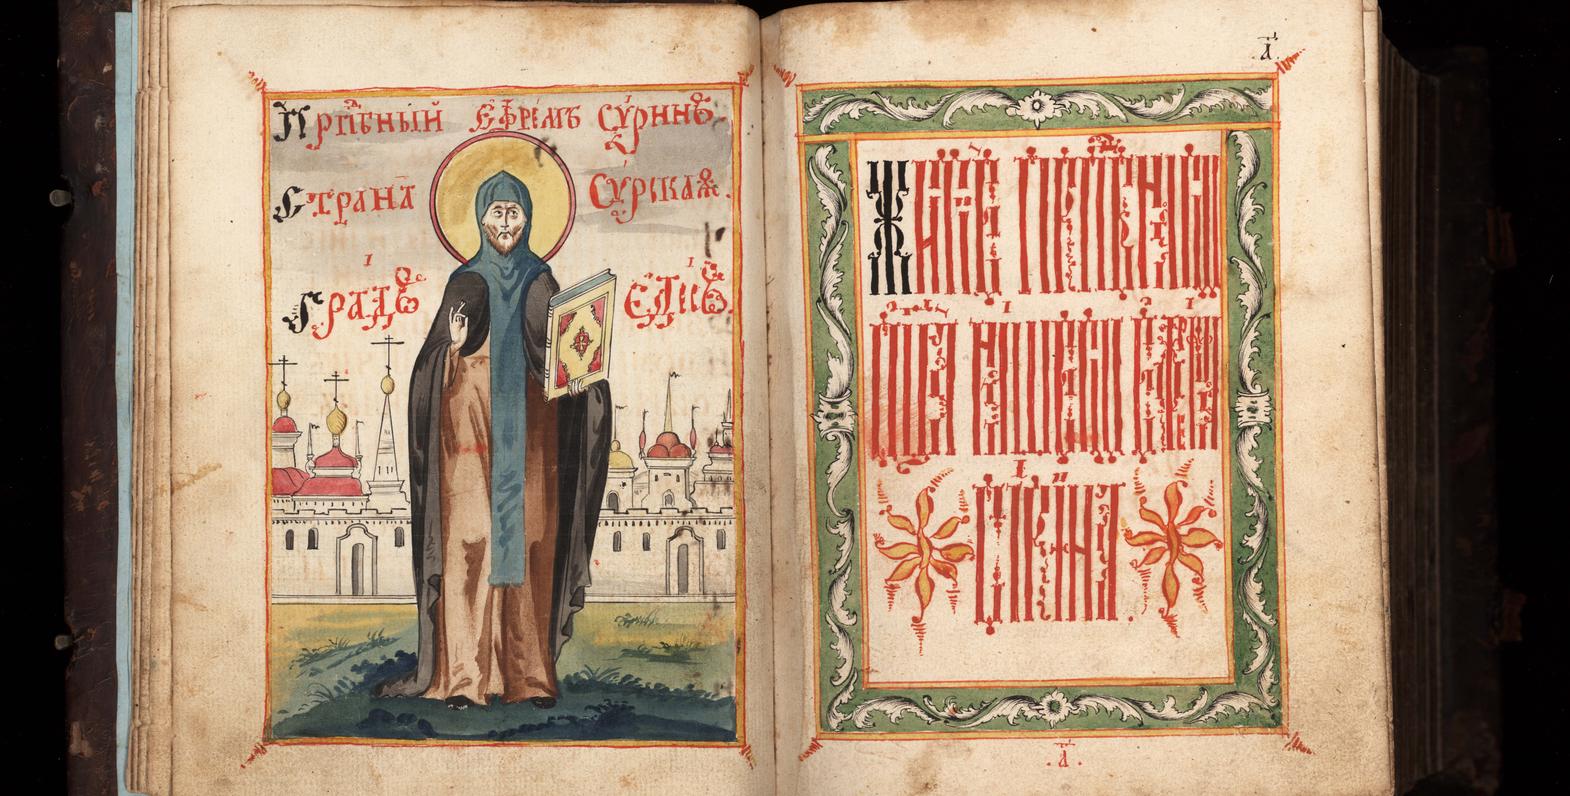 Прпⷣбный Ефремъ Сѵринъ.
Страна Сѵрская.
Градъ Едесъ.
а҃
Житїе преподобнаго
отца нашего Ефрема
Сирина.
.а҃.